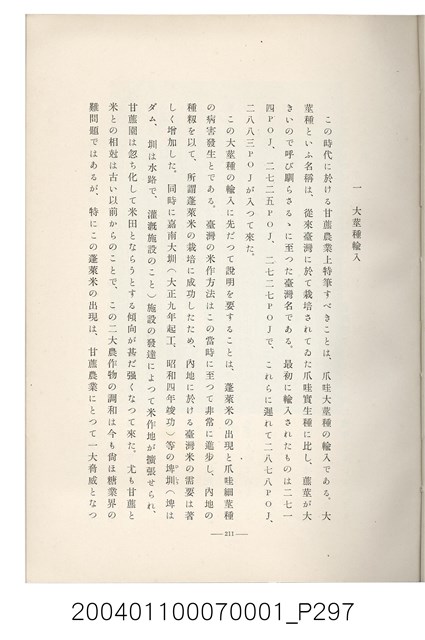 一　大莖種輸入
この時代に於ける甘蔗農業上特筆すべきことは、爪哇大莖種の輸入である。大
莖種といふ名稱は、從來臺灣に於て栽培されてゐた爪哇實生種に比し、蔗莖が大
きいので呼び馴らさるゝに至つた臺灣名である。最初に輸入されたものは二七一
四POJ、二七二五POJ、二七二七POJで、これらに遲れて二八七八POJ、
二八八三POJが入つて來た。
この大莖種の輸入に先だつて說明を要することは、蓬萊米の出現と爪哇細莖種
の病害發生とである。臺灣の米作方法はこの當時に至つて非常に進步し、內地の
種籾を以て、所謂蓬萊米の栽培に成功したため、內地に於ける臺灣米の需要は著
しく增加した。同時に嘉南大圳（大正九年起工、昭和四年竣功）等の埤圳（埤は
ダム、圳は水路で、灌漑施設のこと）施設の發達によつて米作地が擴張せられ、
甘蔗園は忽ち化して米田とならうとする傾向が甚だ强くなつて來た。尤も甘蔗と
米との相剋は古い以前からのことで、この二大農作物の調和は今も尙ほ糖業界の
難問題ではあるが、特にこの蓬萊米の出現は、甘蔗農業にとつて一大脅威となつ
— 211 —
200401100070001_P297